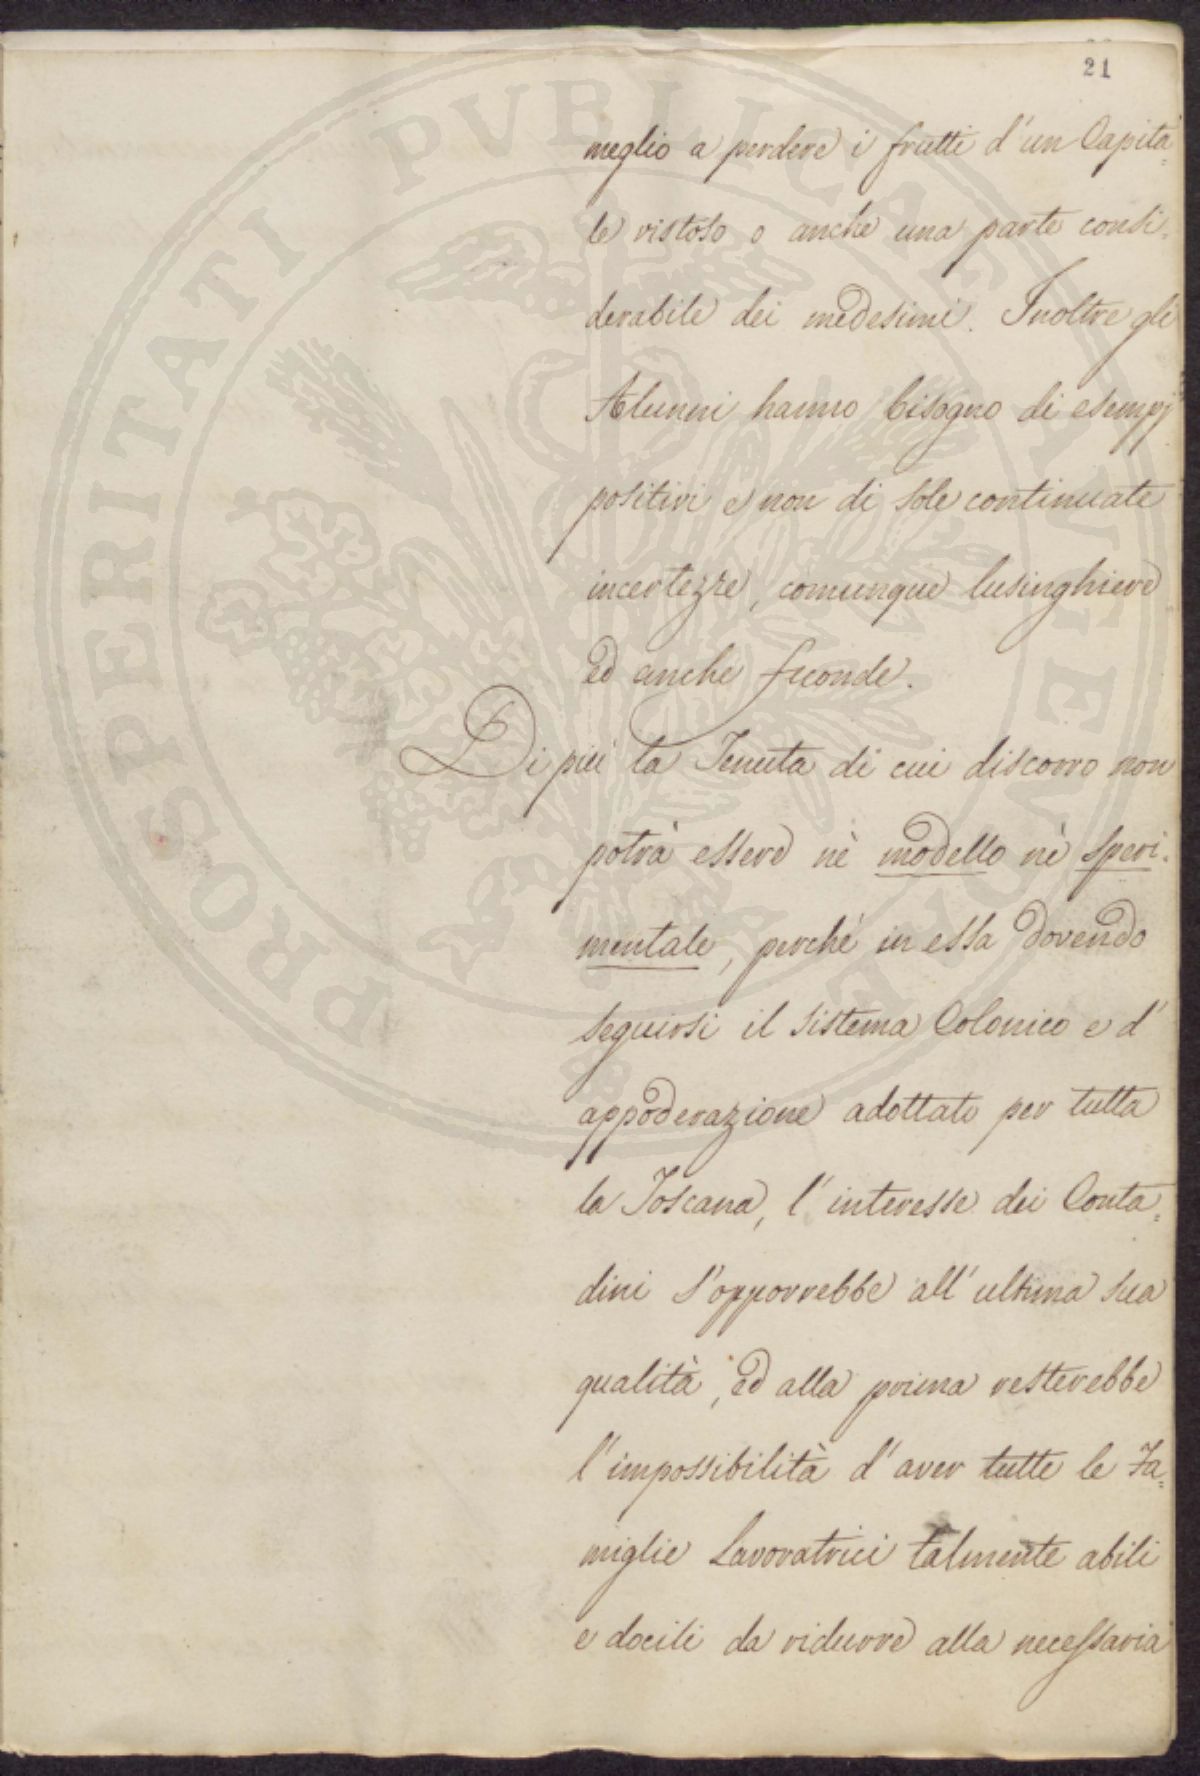 21
meglio a perdere i frutti d'un Capita=
le vistoso o anche una parte consi=
derabile dei medesimi. Inoltre gli
Alunni hanno bisogno di esempj
positivi e non di sole continuate
incertezze, comunque lusinghiere
ed anche feconde.
Di più la Tenuta di cui discorro non
potrà essere nè modello nè speri=
mentale, perchè in essa dovendo
seguirsi il sistema Colonico e d'
appoderazione adottato per tutta
la Toscana, l'interesse dei Conta=
dini s'opporrebbe all'ultima sua
qualità, ed alla prima resterebbe
l'impossibilità d'aver tutte le Fa=
miglie Lavoratrici talmente abili
e docili da ridurre alla necessaria
PROSPERITATI PVBLICAE AVGENDAE